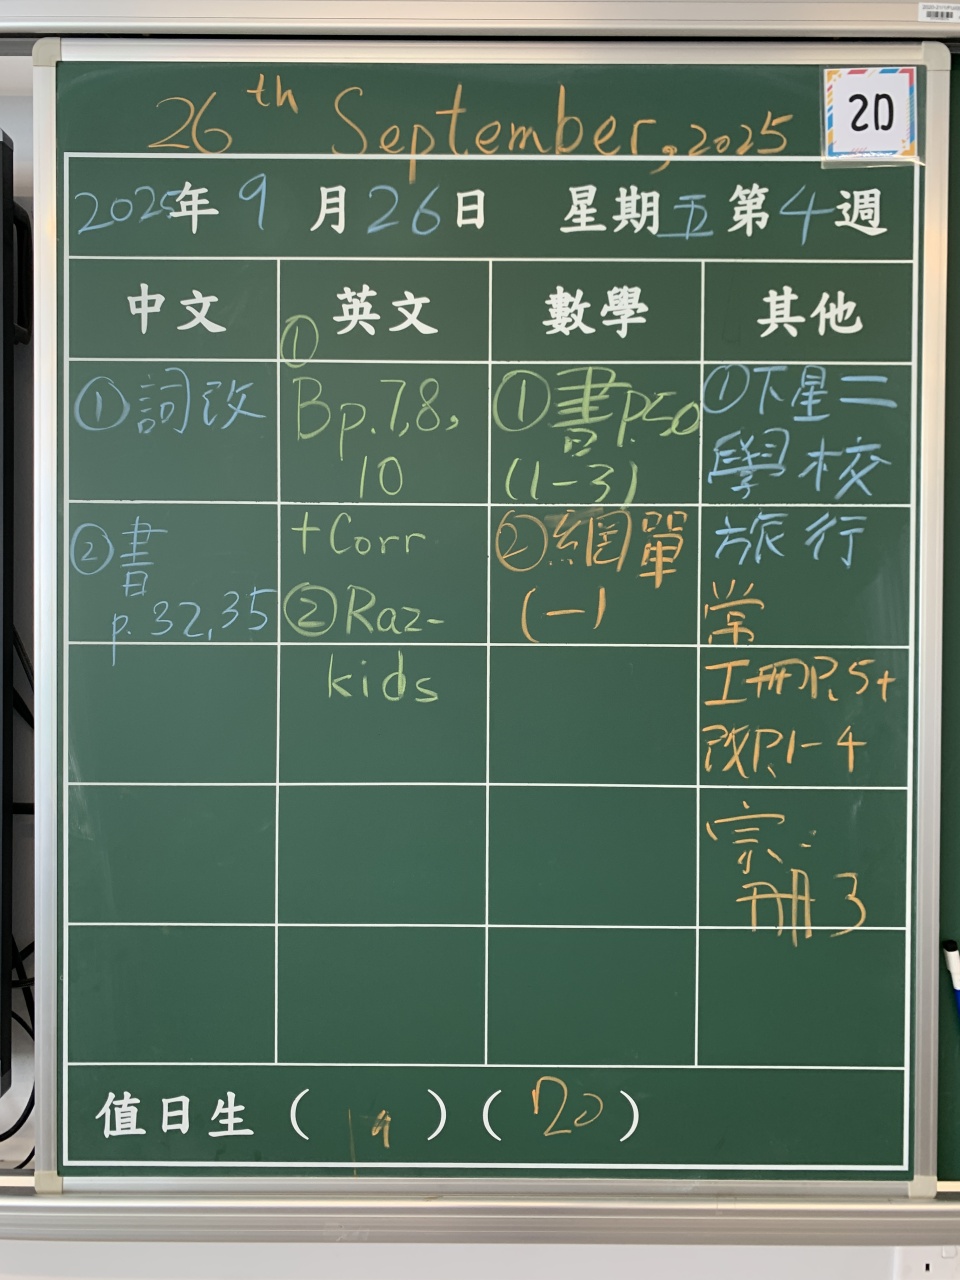 26th September, 2025
2D
2025年9月26日 星期五第4週
中文 英文 數學 其他
①詞改
②書
p.32,35
①
Bp.7,8,
10
+Corr
②Raz-
kids
①書p.50
(1-3)
②網單
(一)
①下星二
學校
旅行
常
工冊P.5+
改P.1-4
宗:
冊3
值日生（19）（20）